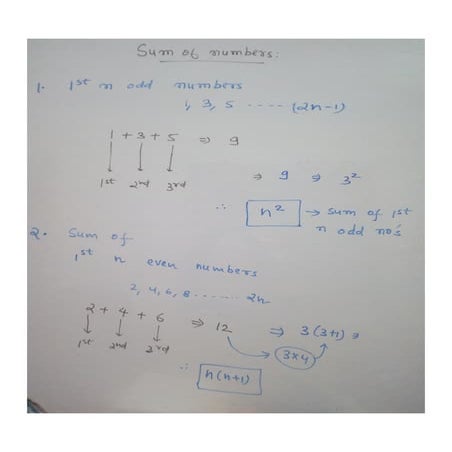 Sum of numbers:
1. 1st n odd numbers
1, 3, 5 ---- (2n-1)
1 + 3 + 5 ⇒ 9
1st 2nd 3rd ⇒ 9 ⇒ 3²
∴ n² → sum of 1st
n odd no's
2. Sum of
1st n even numbers
2, 4, 6, 8 ------- 2n
2 + 4 + 6 ⇒ 12 ⇒ 3(3+1) ⇒
1st 2nd 3rd 3×4
∴ n(n+1)